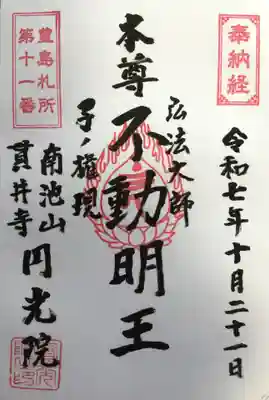 奉納経
令和七年十月二十一日
弘法大師
本尊不動明王
子ノ権現
豊島札所
第十一番
南池山
貫井寺
円光院